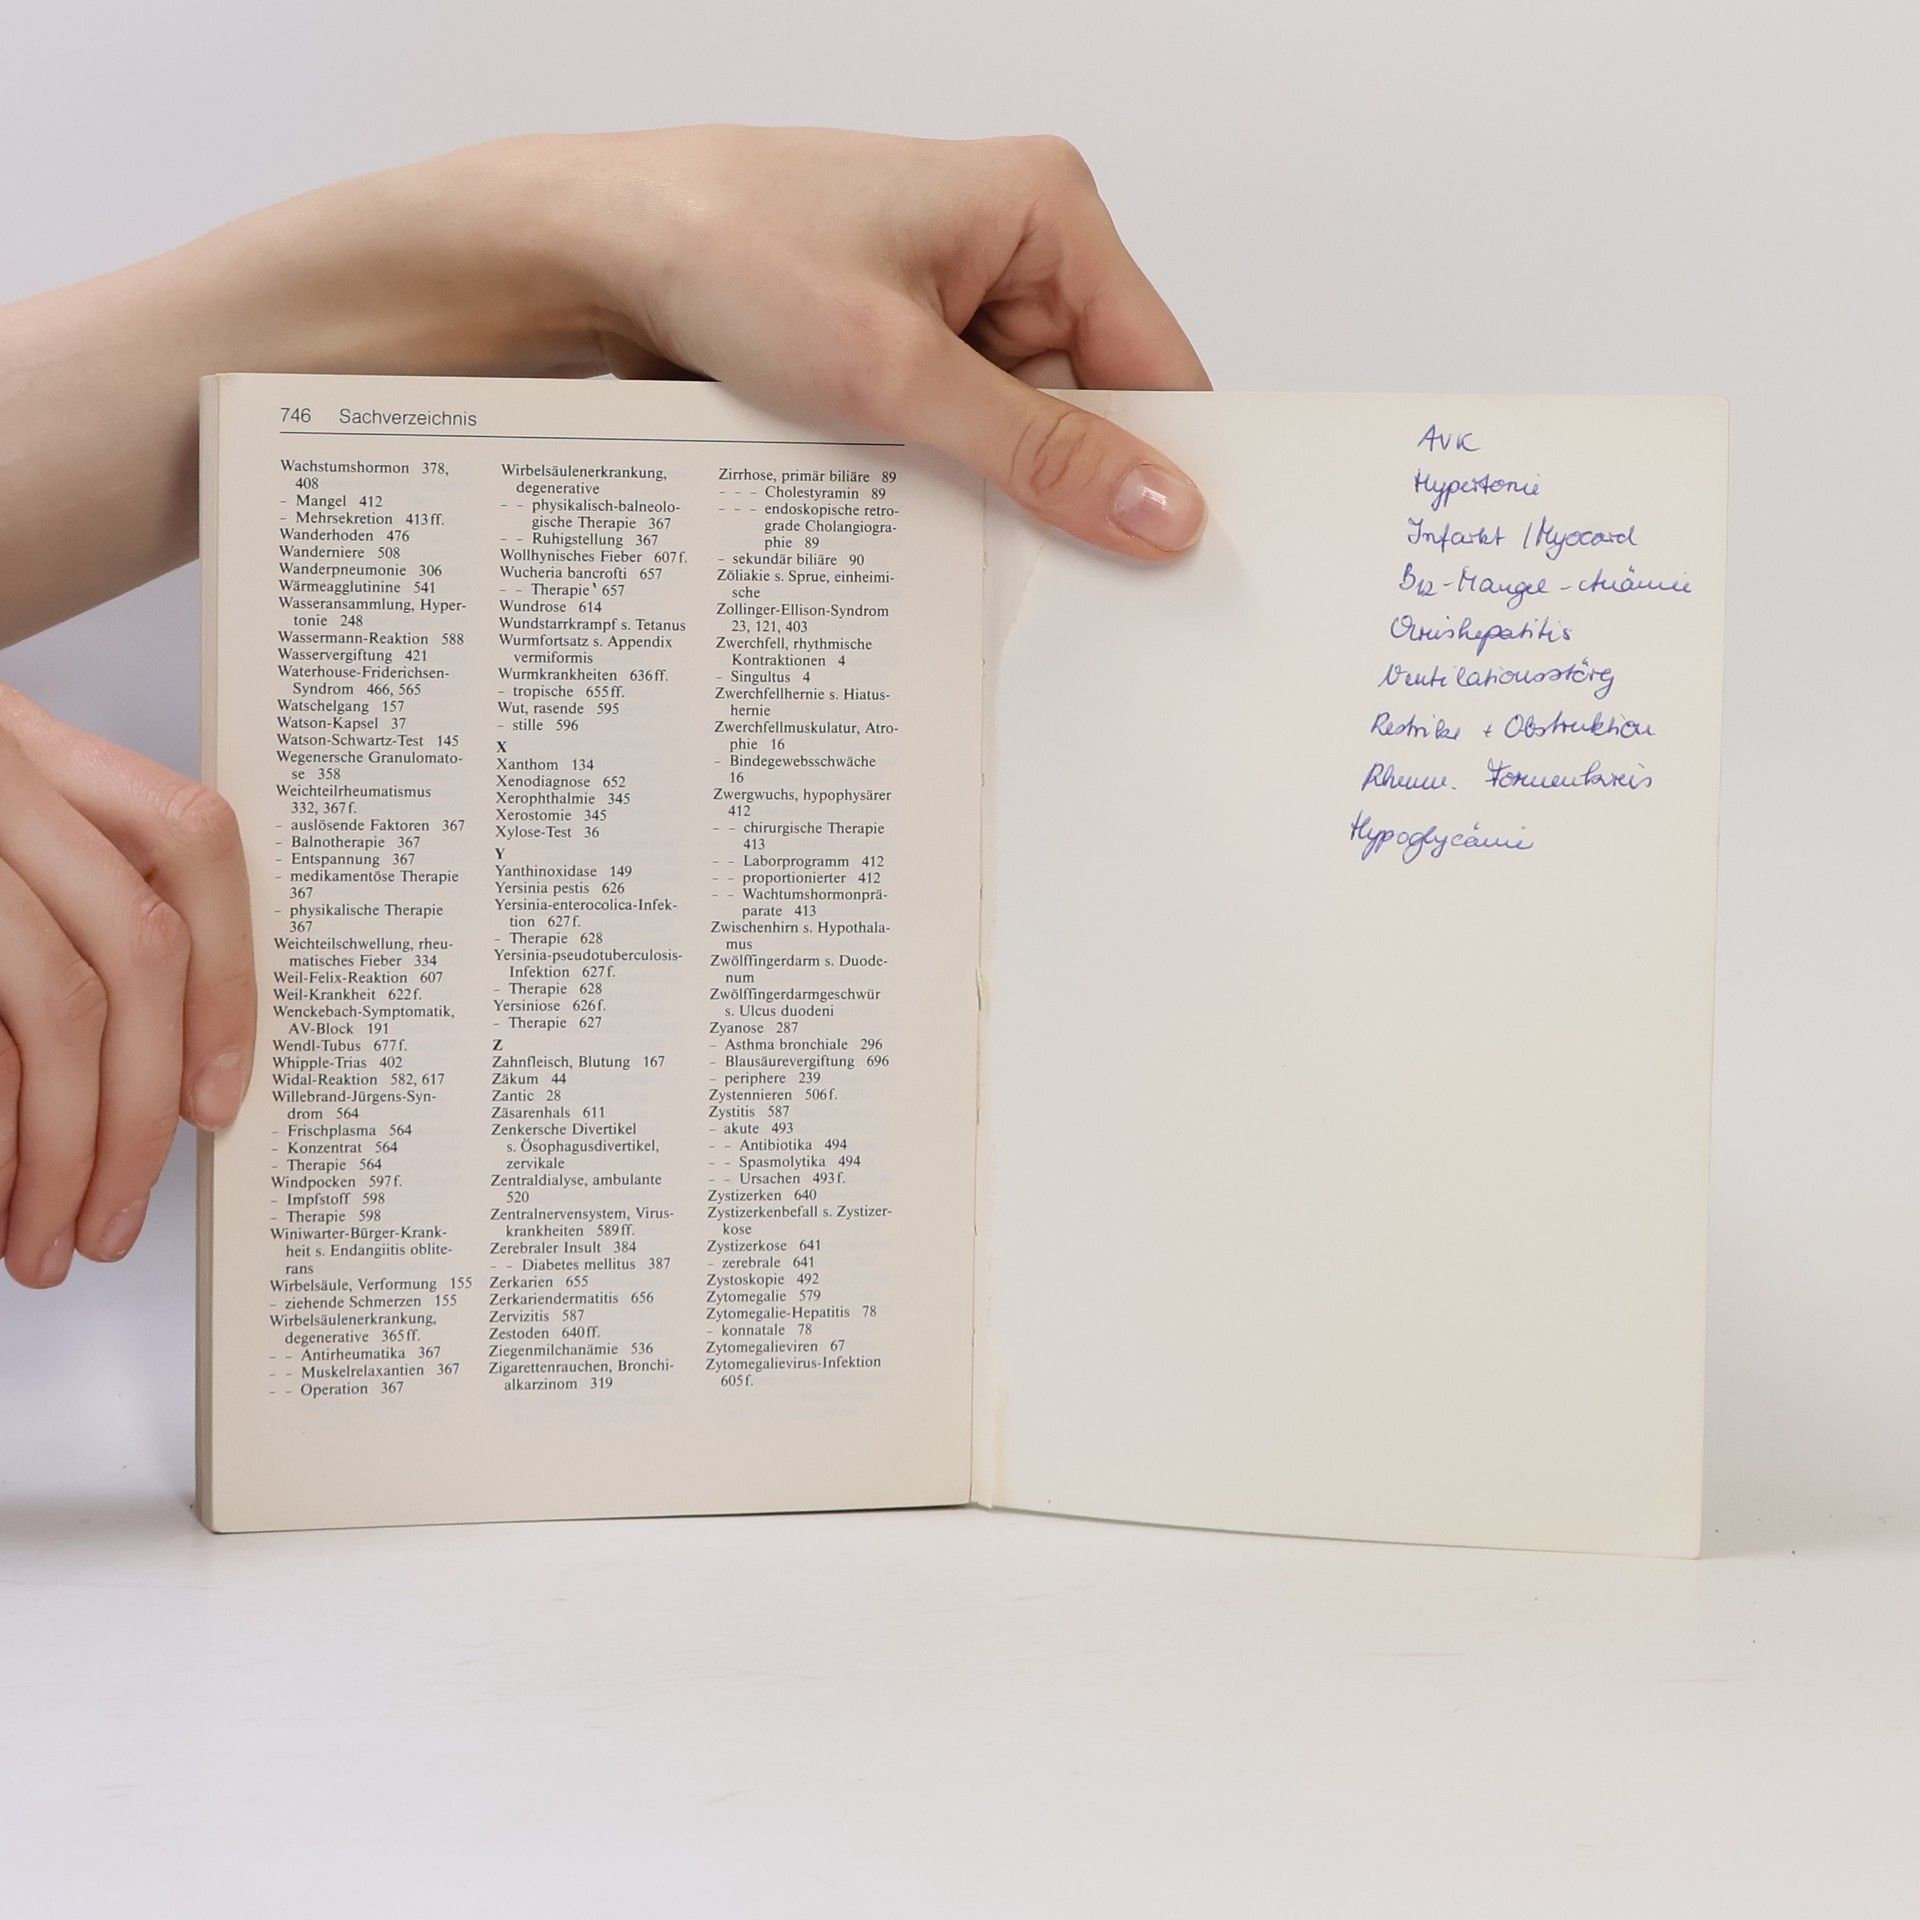 746 Sachverzeichnis
Wachstumshormon 378,
408
– Mangel 412
– Mehrsekretion 413 ff.
Wanderhoden 476
Wanderniere 508
Wanderpneumonie 306
Wärmeagglutinine 541
Wasseransammlung, Hyper-
tonie 248
Wassermann-Reaktion 588
Wasservergiftung 421
Waterhouse-Friderichsen-
Syndrom 466, 565
Watschelgang 157
Watson-Kapsel 37
Watson-Schwartz-Test 145
Wegenersche Granulomato-
se 358
Weichteilrheumatismus
332, 367 f.
– auslösende Faktoren 367
– Balnotherapie 367
– Entspannung 367
– medikamentöse Therapie
367
– physikalische Therapie
367
Weichteilschwellung, rheu-
matisches Fieber 334
Weil-Felix-Reaktion 607
Weil-Krankheit 622 f.
Wenckebach-Symptomatik,
AV-Block 191
Wendl-Tubus 677 f.
Whipple-Trias 402
Widal-Reaktion 582, 617
Willebrand-Jürgens-Syn-
drom 564
– Frischplasma 564
– Konzentrat 564
– Therapie 564
Windpocken 597 f.
– Impfstoff 598
– Therapie 598
Winiwarter-Bürger-Krank-
heit s. Endangiitis oblite-
rans
Wirbelsäule, Verformung 155
– ziehende Schmerzen 155
Wirbelsäulenerkrankung,
degenerative 365 ff.
– – Antirheumatika 367
– – Muskelrelaxantien 367
– – Operation 367
Wirbelsäulenerkrankung,
degenerative
– – physikalisch-balneolo-
gische Therapie 367
– – Ruhigstellung 367
Wollhynisches Fieber 607 f.
Wucheria bancrofti 657
– – Therapie 657
Wundrose 614
Wundstarrkrampf s. Tetanus
Wurmfortsatz s. Appendix
vermiformis
Wurmkrankheiten 636 ff.
– tropische 655 ff.
Wut, rasende 595
– stille 596
X
Xanthom 134
Xenodiagnose 652
Xerophthalmie 345
Xerostomie 345
Xylose-Test 36
Y
Yanthinoxidase 149
Yersinia pestis 626
Yersinia-enterocolica-Infek-
tion 627 f.
– Therapie 628
Yersinia-pseudotuberculosis-
Infektion 627 f.
– Therapie 628
Yersiniose 626 f.
– Therapie 627
Z
Zahnfleisch, Blutung 167
Zäkum 44
Zantic 28
Zäsarenhals 611
Zenkersche Divertikel
s. Ösophagusdivertikel,
zervikale
Zentraldialyse, ambulante
520
Zentralnervensystem, Virus-
krankheiten 589 ff.
Zerebraler Insult 384
– – Diabetes mellitus 387
Zerkarien 655
Zerkariendermatitis 656
Zervizitis 587
Zestoden 640 ff.
Ziegenmilchanämie 536
Zigarettenrauchen, Bronchi-
alkarzinom 319
Zirrhose, primär biliäre 89
– – – Cholestyramin 89
– – – endoskopische retro-
grade Cholangiogra-
phie 89
– sekundär biliäre 90
Zöliakie s. Sprue, einheimi-
sche
Zollinger-Ellison-Syndrom
23, 121, 403
Zwerchfell, rhythmische
Kontraktionen 4
– Singultus 4
Zwerchfellhernie s. Hiatus-
hernie
Zwerchfellmuskulatur, Atro-
phie 16
– Bindegewebsschwäche
16
Zwergwuchs, hypophysärer
412
– – chirurgische Therapie
413
– – Laborprogramm 412
– – proportionierter 412
– – Wachtumshormonprä-
parate 413
Zwischenhirn s. Hypothala-
mus
Zwölffingerdarm s. Duode-
num
Zwölffingerdarmgeschwür
s. Ulcus duodeni
Zyanose 287
– Asthma bronchiale 296
– Blausäurevergiftung 696
– periphere 239
Zystennieren 506 f.
Zystitis 587
– akute 493
– – Antibiotika 494
– – Spasmolytika 494
– – Ursachen 493 f.
Zystizerken 640
Zystizerkenbefall s. Zystizer-
kose
Zystizerkose 641
– zerebrale 641
Zystoskopie 492
Zytomegalie 579
Zytomegalie-Hepatitis 78
– konnatale 78
Zytomegalieviren 67
Zytomegalievirus-Infektion
605 f.
AVK
Hypertonie
Infarkt / Myocard
B12-Mangel-Anämie
Virushepatitis
Ventilationsstörg
Restrikt + Obstruktion
Rheum. Formenkreis
Hypoglycämie